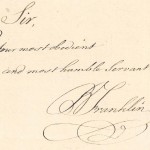 Sir,
Your most obedient
and most humble Servant
B Franklin